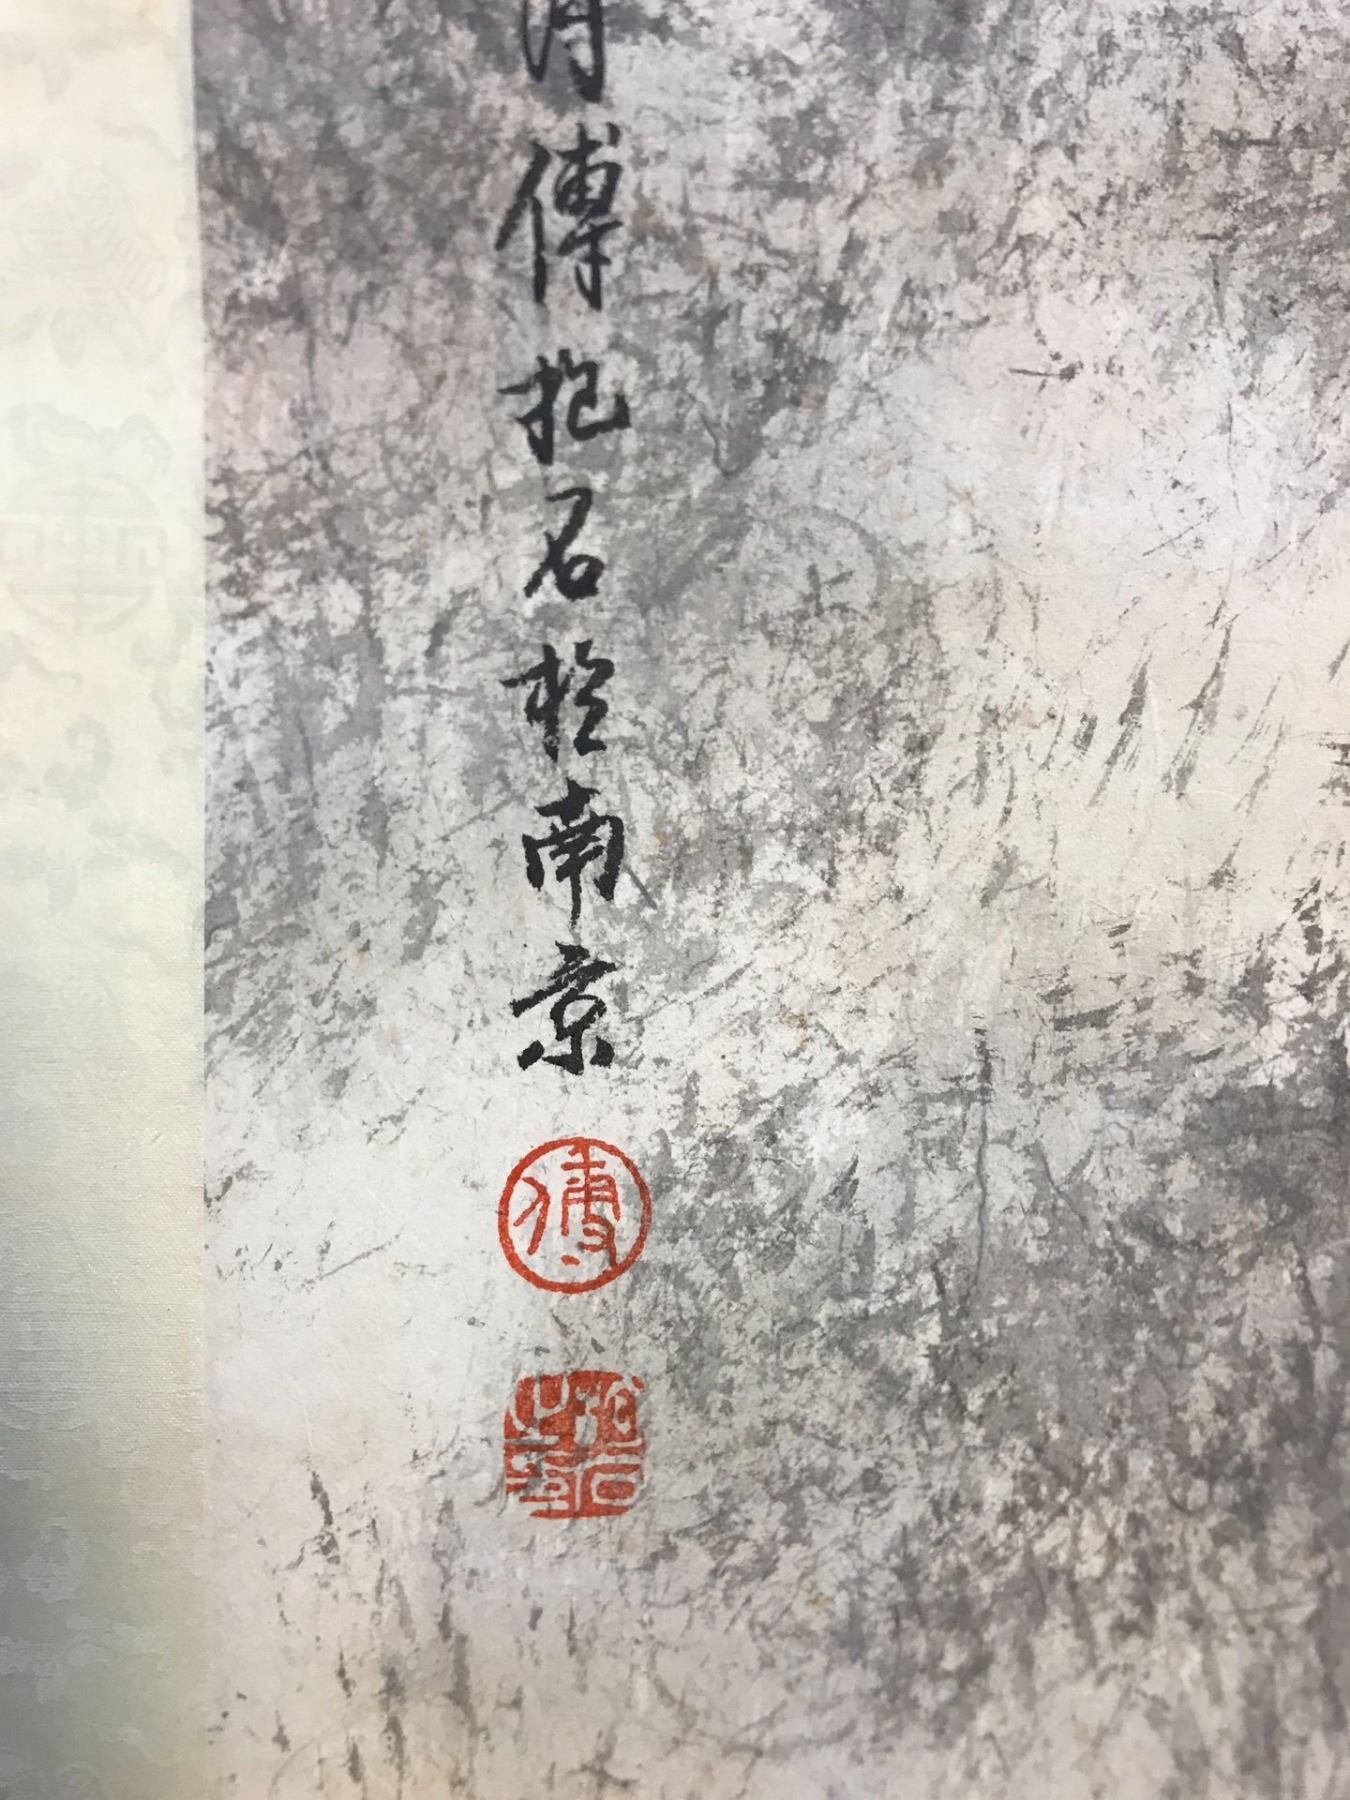 月傅抱石於南京
傅
抱石